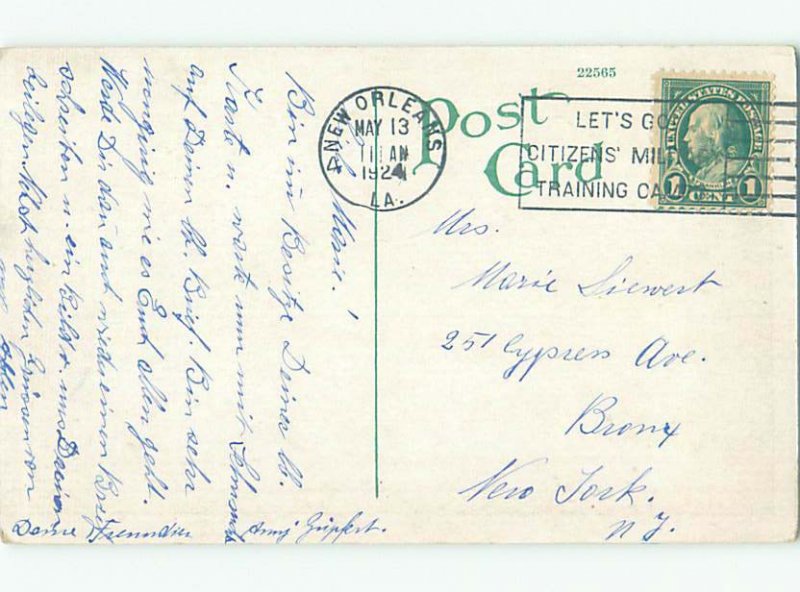 22565
Post
Card
NEW ORLEANS
MAY 13
11 AM
1924
LA.
LET'S GO
CITIZENS' MILITARY
TRAINING CAMP
UNITED STATES POSTAGE
1 CENT 1
Mrs.
Marie Siewert
251 Cypress Ave.
Bronx
New York.
N.Y.
Marie!
Bin im Besitze Deiner lb.
Karte u. warte nun mit
auf Deinen lb. Brief. Bin sehr
neugierig wie es Euch allen geht.
Werde Dir dann wieder einen Brief
schreiben u. ein Bild v. uns
den Grüssen von
allen
Deine Freundin Anny